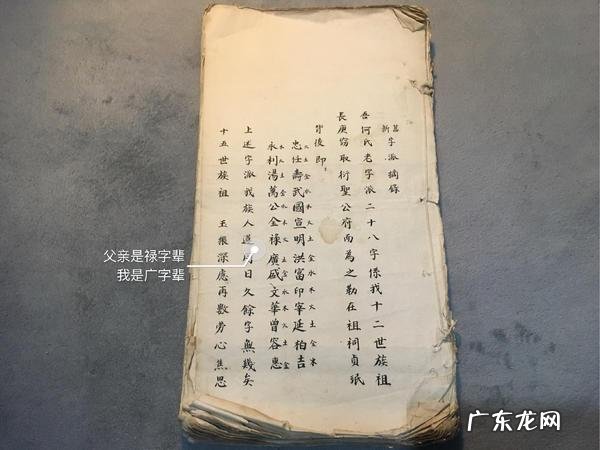 舊新字派摘錄
吾何氏老字派二十八字係我十二世族祖
長庚窃取衍聖公府而為之勒在祖祠貞珉
背後即：
忠仕壽武國宣明洪富印宰廷柏吉
永利湯萬公金祿廣盛文華曾容惠
上述字派我族人遵用日久餘字無幾矣
十五世族祖 玉振深慮再數勞心焦思
父亲是禄字辈
我是广字辈
广东龙网